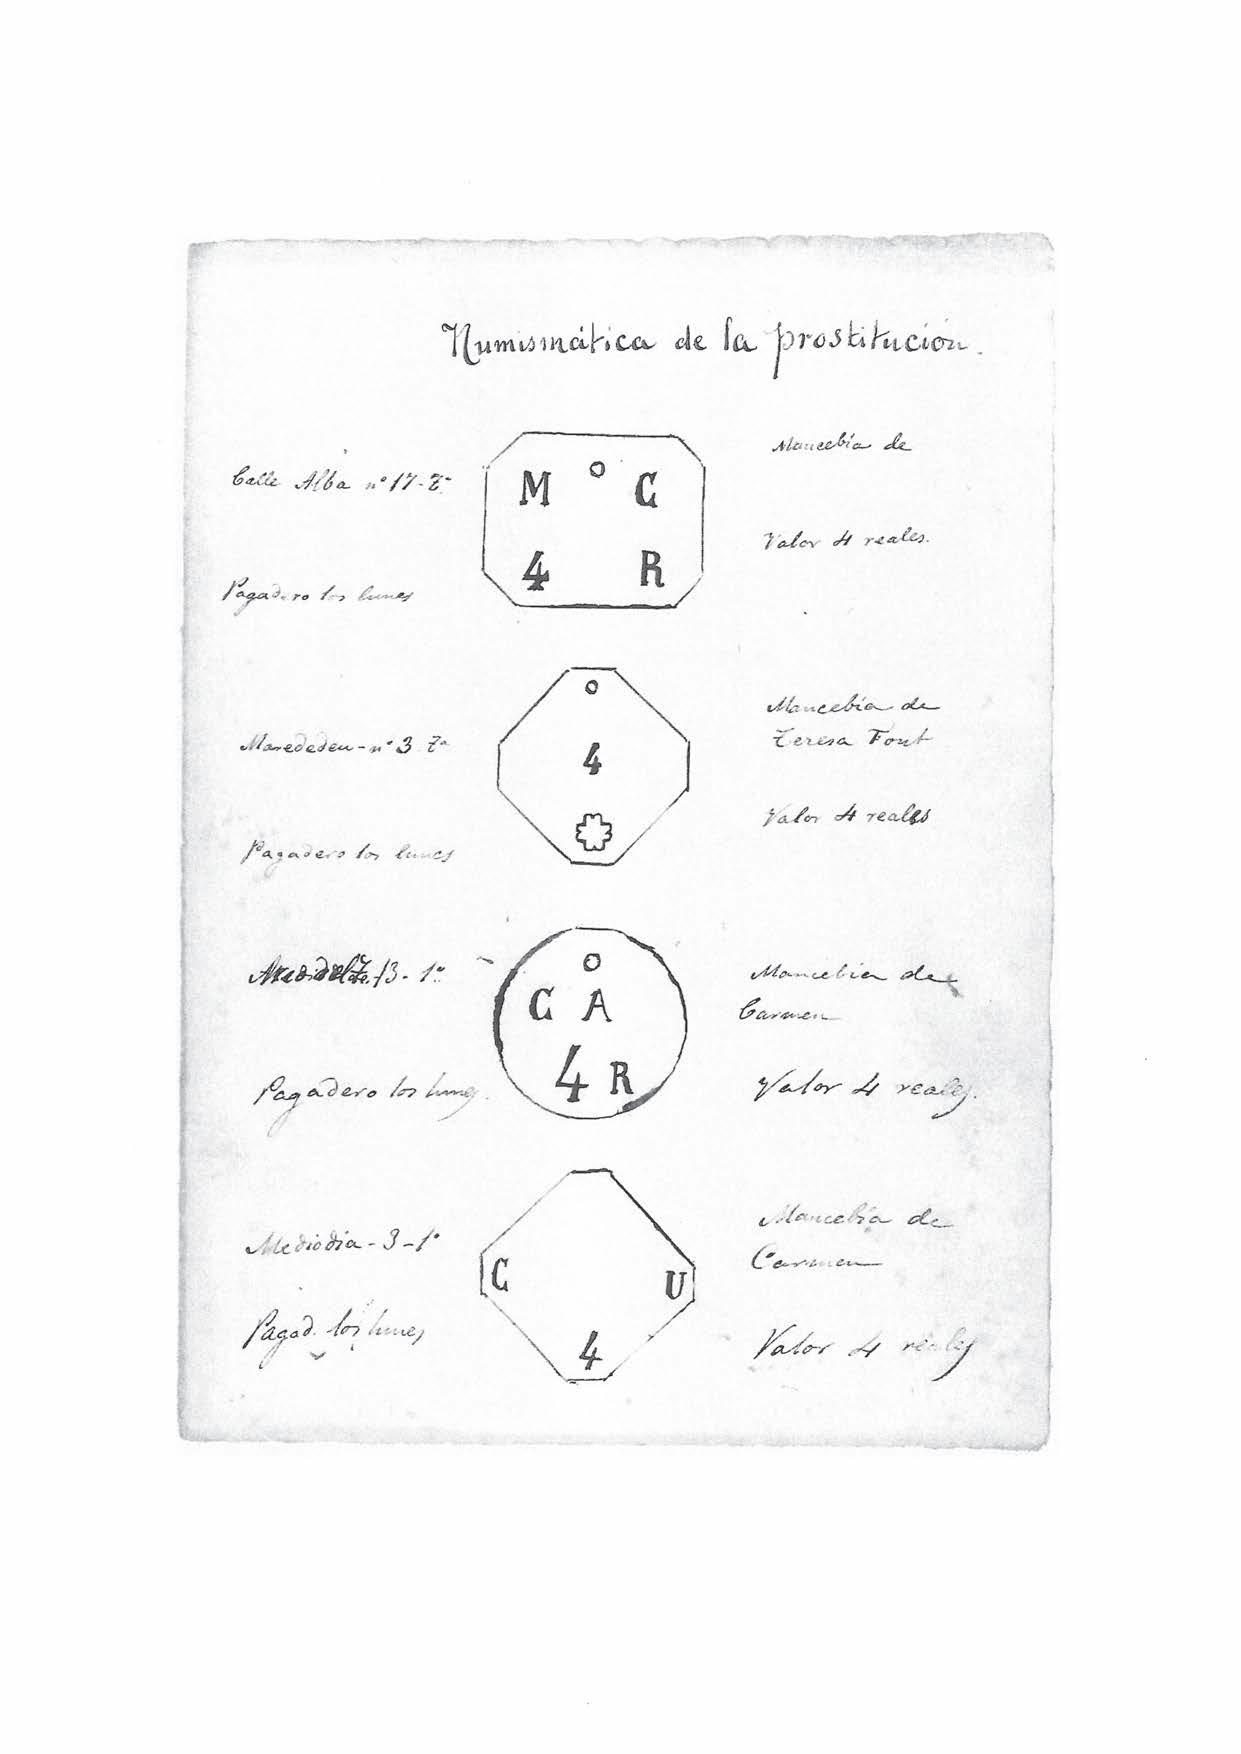 Numismática de la prostitución.
Calle Alba nº 17-2º
Pagadero los lunes
M C
4 R
Mancebía de
Valor 4 reales.
Marededeu - nº 3
Pagadero los lunes
4
Mancebía de
Teresa Font
Valor 4 reales
13 - 1º
Pagadero los lunes.
C A
4 R
Mancebia de
Carmen
Valor 4 reales.
Mediodia - 3 - 1º
Pagad. los lunes
C U
4
Mancebía de
Carmen
Valor 4 reales